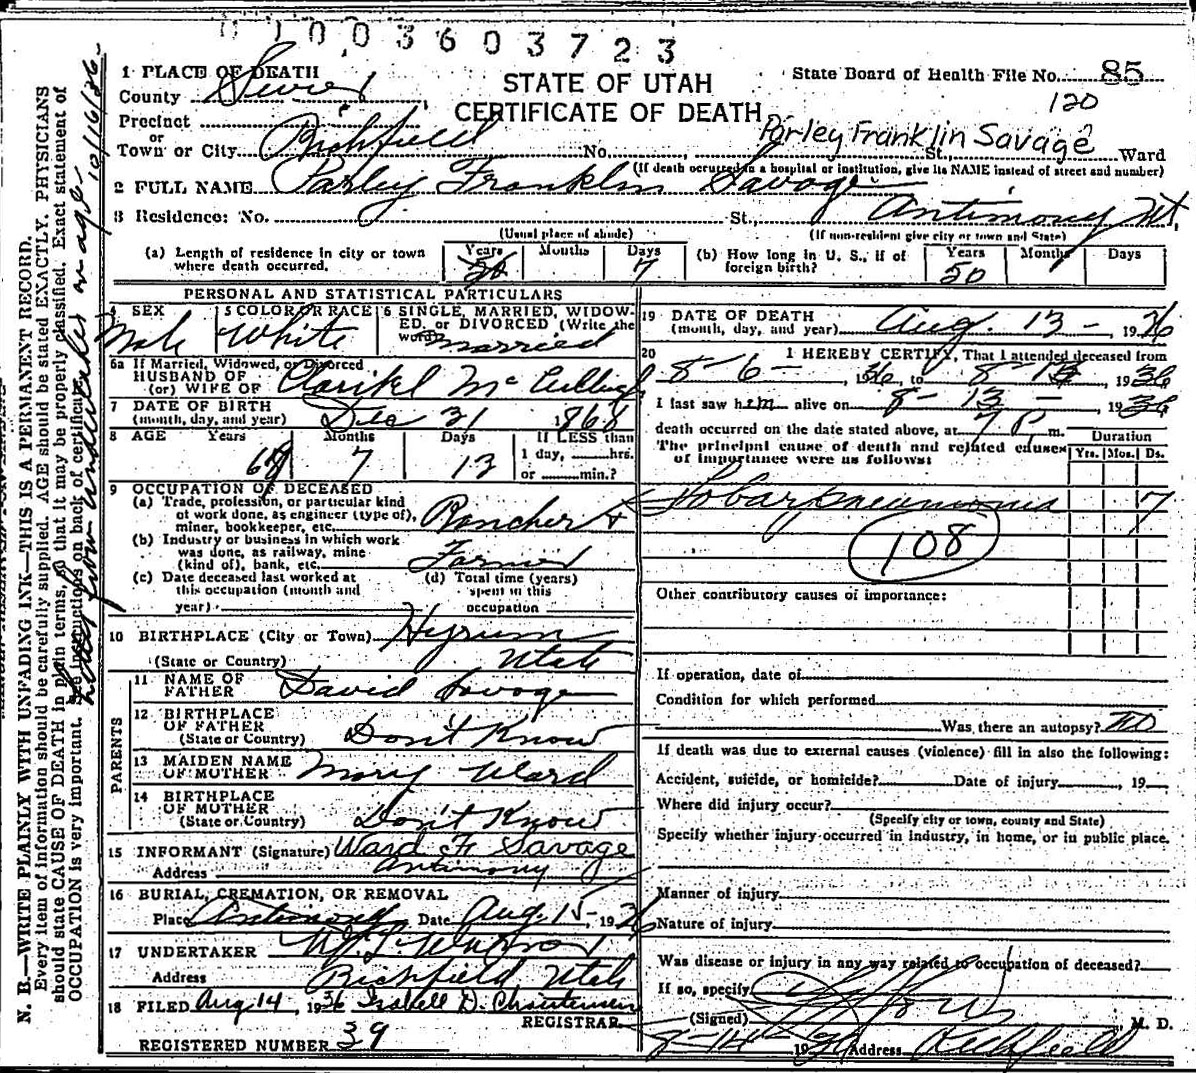 0 1 0 0 3 6 0 3 7 2 3
1 PLACE OF DEATH
County Sevier
STATE OF UTAH
CERTIFICATE OF DEATH
State Board of Health File No. 85
120
Precinct
or
Town or City Richfield No. St. Ward
Parley Franklin Savage
(If death occurred in a hospital or institution, give its NAME instead of street and number)
2 FULL NAME Parley Franklin Savage
3 Residence: No. St. Antimony Ut.
(Usual place of abode) (If non-resident give city or town and State)
(a) Length of residence in city or town where death occurred. Years Months Days 7
(b) How long in U. S., if of foreign birth? Years 50 Months Days
PERSONAL AND STATISTICAL PARTICULARS
4 SEX Male
5 COLOR OR RACE White
6 SINGLE, MARRIED, WIDOWED, or DIVORCED (Write the word) married
6a If Married, Widowed, or Divorced
HUSBAND OF
(or) WIFE OF Claribel McCullough
7 DATE OF BIRTH
(month, day, and year) Dec 31 1868
8 AGE Years Months Days If LESS than
67 7 13 1 day, hrs.
or min.?
9 OCCUPATION OF DECEASED
(a) Trade, profession, or particular kind
of work done, as engineer (type of),
miner, bookkeeper, etc. Rancher &
(b) Industry or business in which work
was done, as railway, mine
(kind of), bank, etc. Farmer
(c) Date deceased last worked at
this occupation (month and
year)
(d) Total time (years)
spent in this
occupation
10 BIRTHPLACE (City or Town) Hyrum
(State or Country) Utah
PARENTS
11 NAME OF
FATHER David Savage
12 BIRTHPLACE
OF FATHER
(State or Country) Don't Know
13 MAIDEN NAME
OF MOTHER Mary Ward
14 BIRTHPLACE
OF MOTHER
(State or Country) Don't Know
15 INFORMANT (Signature) Ward F. Savage
Address Antimony
16 BURIAL, CREMATION, OR REMOVAL
Place Antimony Date Aug. 15- 1936
17 UNDERTAKER
Address Richfield Utah
18 FILED Aug 14, 1936 Isabell D. Christensen
REGISTRAR
REGISTERED NUMBER 39
19 DATE OF DEATH
(month, day, and year) Aug. 13 - 1936
20 I HEREBY CERTIFY, That I attended deceased from
8-6-, 1936, to 8-13, 1936
I last saw him alive on 8-13-, 1936
death occurred on the date stated above, at 7 P. m.
The principal cause of death and related causes
of importance were as follows:
Duration
Yrs. Mos. Ds.
Lobar pneumonia 7
108
Other contributory causes of importance:
If operation, date of
Condition for which performed
Was there an autopsy? no
If death was due to external causes (violence) fill in also the following:
Accident, suicide, or homicide? Date of injury , 19
Where did injury occur?
(Specify city or town, county and State)
Specify whether injury occurred in industry, in home, or in public place.
Manner of injury
Nature of injury
Was disease or injury in any way related to occupation of deceased?
If so, specify
(Signed) M. D.
8-14- 1936 Address Richfield
N. B.—WRITE PLAINLY WITH UNFADING INK—THIS IS A PERMANENT RECORD.
Every item of information should be carefully supplied. AGE should be stated EXACTLY. PHYSICIANS
should state CAUSE OF DEATH in plain terms, so that it may be properly classified. Exact statement of
OCCUPATION is very important. See instructions on back of certificate.
from undertaker in age 10/16/36